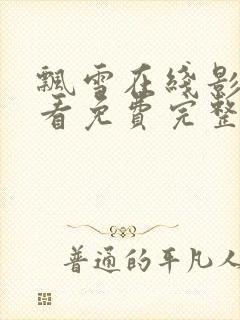 飘雪在线影
看免费完整
普通的平凡人